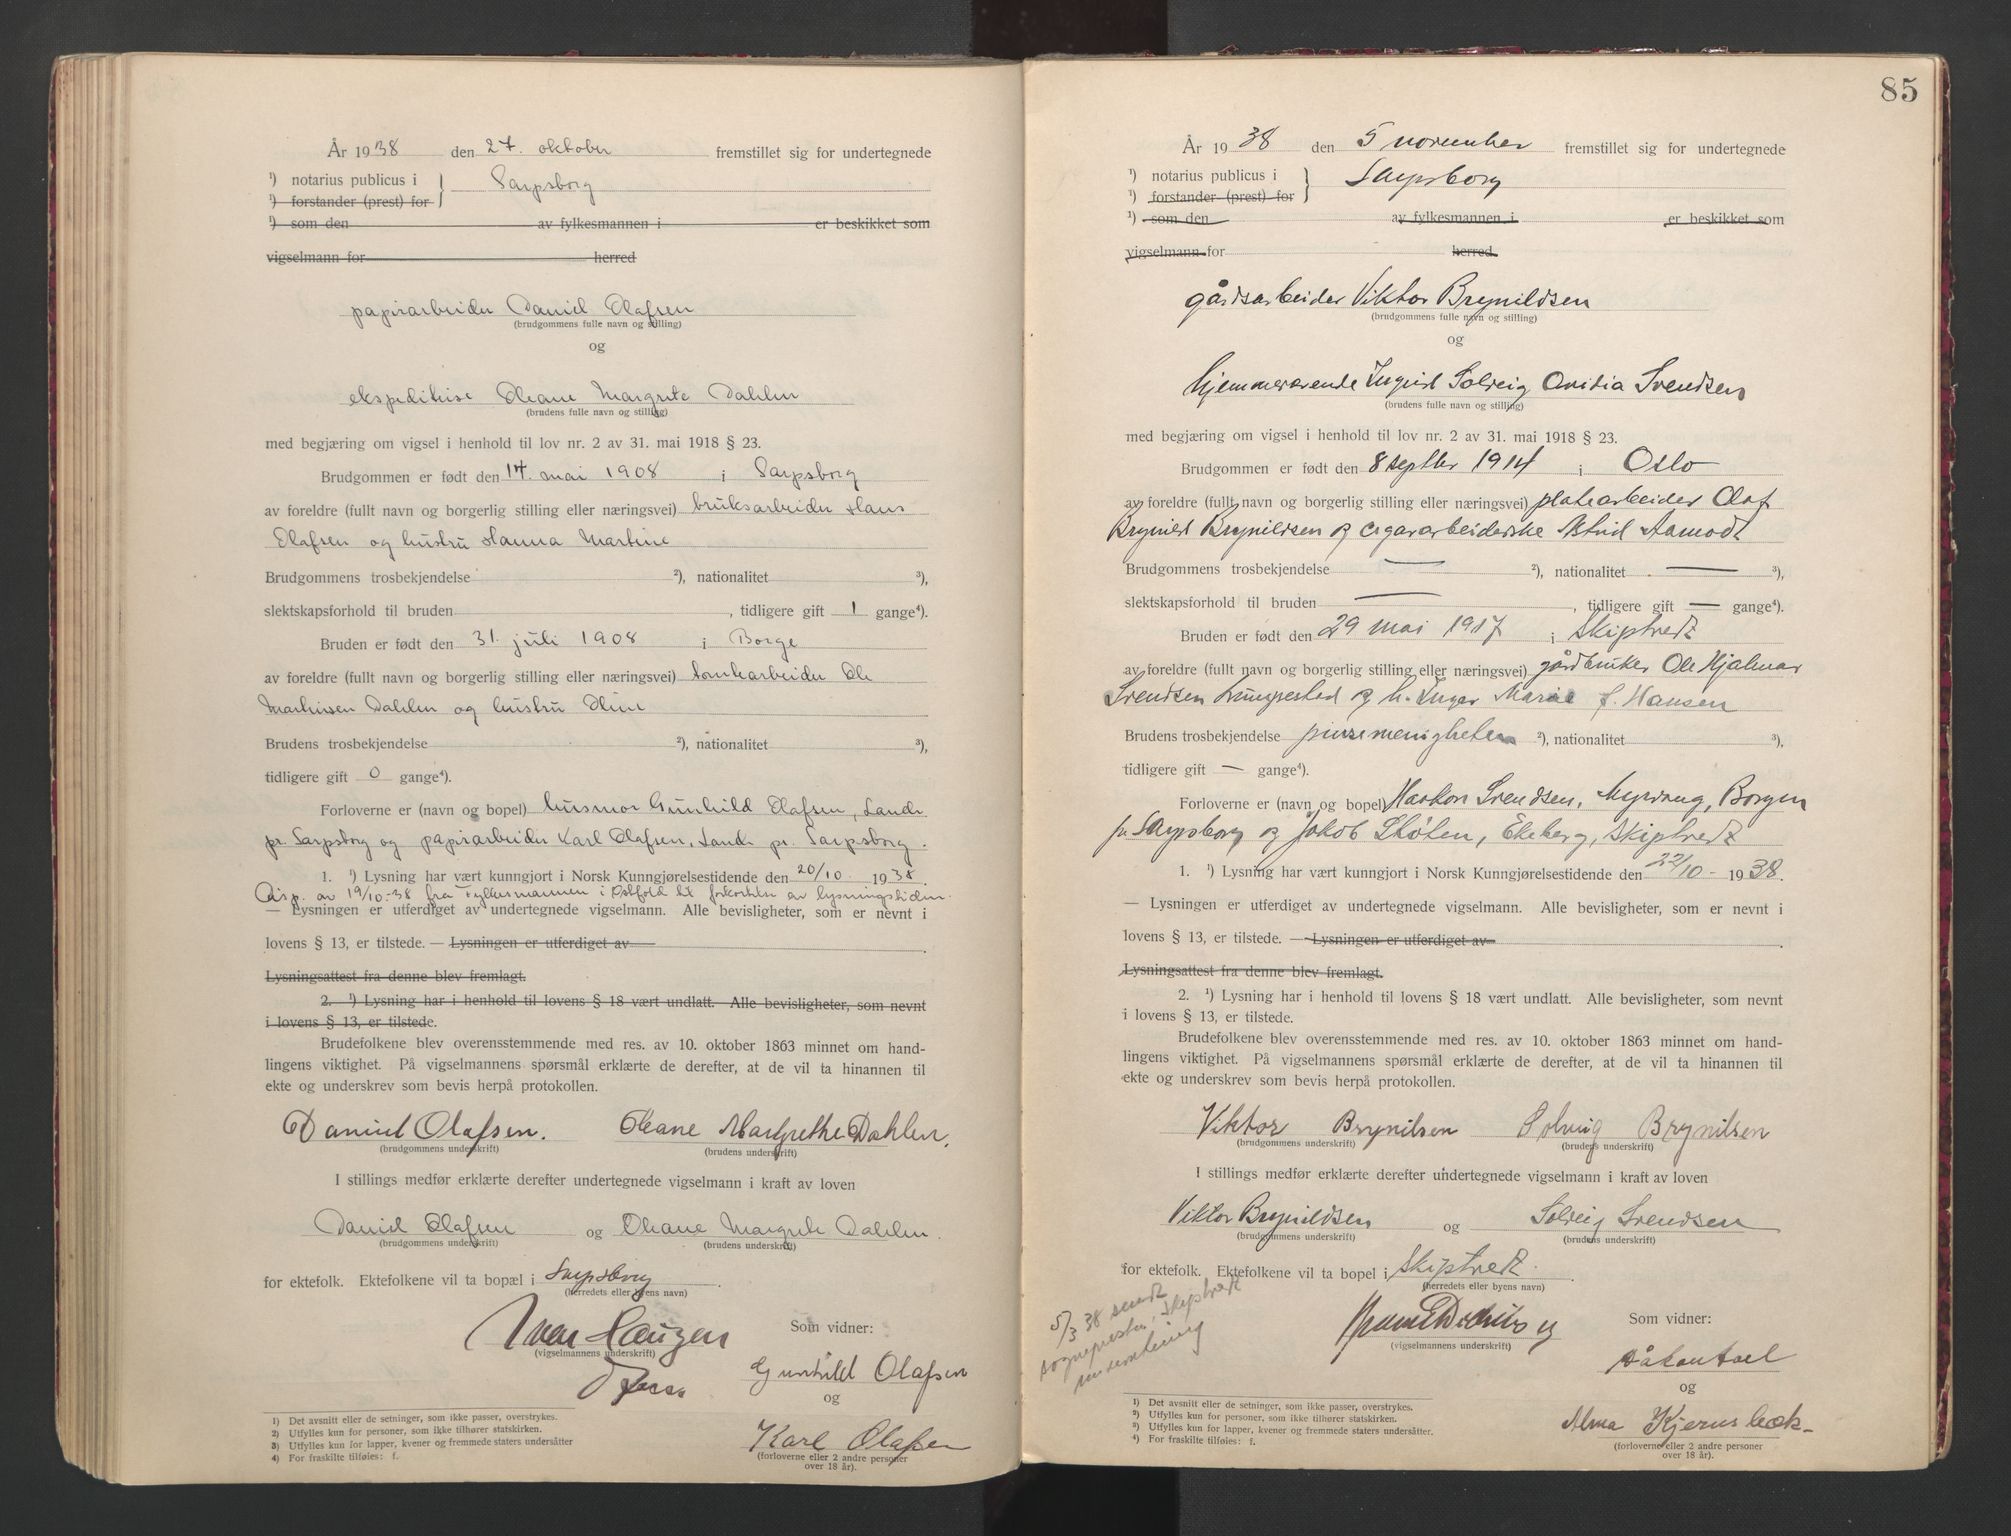 År 1938 den 27. oktober fremstillet sig for undertegnede
¹) notarius publicus i } Sarpsborg
¹) forstander (prest) for
¹) som den av fylkesmannen i er beskikket som
vigselmann for herred
papirarbeider Daniel Olafsen
(brudgommens fulle navn og stilling)
og
ekspeditrise Oleane Margrete Dahlen
(brudens fulle navn og stilling)
med begjæring om vigsel i henhold til lov nr. 2 av 31. mai 1918 § 23.
Brudgommen er født den 14. mai 1908 i Sarpsborg
av foreldre (fullt navn og borgerlig stilling eller næringsvei) bruksarbeider Hans
Olafsen og hustru Hanna Martine
Brudgommens trosbekjendelse ²), nationalitet ³),
slektskapsforhold til bruden , tidligere gift 1 gange⁴).
Bruden er født den 31. juli 1908 i Borge
av foreldre (fullt navn og borgerlig stilling eller næringsvei) tomtearbeider Ole
Mathisen Dahlen og hustru Oline
Brudens trosbekjendelse ²), nationalitet ³),
tidligere gift 0 gange⁴).
Forloverne er (navn og bopel) husmor Gunhild Olafsen, Lande
pr. Sarpsborg og papirarbeider Karl Olafsen, Lande pr. Sarpsborg.
1. ¹) Lysning har vært kunngjort i Norsk Kunngjørelsestidende den 20/10 1938.
Disp. av 19/10-38 fra Fylkesmannen i Østfold til forkortelse av lysningstiden.
— Lysningen er utferdiget av undertegnede vigselmann. Alle bevisligheter, som er nevnt i
lovens § 13, er tilstede. — Lysningen er utferdiget av
Lysningsattest fra denne blev fremlagt.
2. ¹) Lysning har i henhold til lovens § 18 vært undlatt. Alle bevisligheter, som nevnt
i lovens § 13, er tilstede.
Brudefolkene blev overensstemmende med res. av 10. oktober 1863 minnet om hand-
lingens viktighet. På vigselmannens spørsmål erklærte de derefter, at de vil ta hinannen til
ekte og underskrev som bevis herpå protokollen.
Daniel Olafsen. Oleane Margrethe Dahlen.
(brudgommens underskrift) (brudens underskrift)
I stillings medfør erklærte derefter undertegnede vigselmann i kraft av loven
Daniel Olafsen og Oleane Margrete Dahlen.
(brudgommens underskrift) (brudens underskrift)
for ektefolk. Ektefolkene vil ta bopæl i Sarpsborg.
(herredets eller byens navn)
Iver Haugen Som vidner:
(vigselmannens underskrift)
Gunhild Olafsen
og
Karl Olafsen
(forloverne eller 2 andre personer
over 18 år).
1) Det avsnitt eller de setninger, som ikke passer, overstrykes.
2) Utfylles kun for personer, som ikke tilhører statskirken.
3) Utfylles kun for lapper, kvener og fremmede staters undersåtter
4) For fraskilte tilføies: f.
85
År 1938 den 5 november fremstillet sig for undertegnede
¹) notarius publicus i } Sarpsborg
¹) forstander (prest) for
¹) som den av fylkesmannen i er beskikket som
vigselmann for herred
gårdsarbeider Viktor Brynildsen
(brudgommens fulle navn og stilling)
og
hjemmeværende Ingrid Solveig Ovidia Svendsen
(brudens fulle navn og stilling)
med begjæring om vigsel i henhold til lov nr. 2 av 31. mai 1918 § 23.
Brudgommen er født den 8 septbr 1914 i Oslo
av foreldre (fullt navn og borgerlig stilling eller næringsvei) platearbeider Olaf
Brynild Brynildsen og cigararbeiderske Astrid Aamodt
Brudgommens trosbekjendelse — ²), nationalitet — ³),
slektskapsforhold til bruden — , tidligere gift — gange⁴).
Bruden er født den 29 mai 1917 i Skiptvedt
av foreldre (fullt navn og borgerlig stilling eller næringsvei) gårdbruker Ole Hjalmar
Svendsen Lungestad og h. Inger Marie f. Hansen
Brudens trosbekjendelse pinsemenigheten ²), nationalitet ³),
tidligere gift — gange⁴).
Forloverne er (navn og bopel) Haakon Svendsen, Myrvang, Borgen
pr. Sarpsborg og Jakob Stølen, Ekeberg, Skiptvedt
1. ¹) Lysning har vært kunngjort i Norsk Kunngjørelsestidende den 22/10 - 1938.
— Lysningen er utferdiget av undertegnede vigselmann. Alle bevisligheter, som er nevnt i
lovens § 13, er tilstede. — Lysningen er utferdiget av
Lysningsattest fra denne blev fremlagt.
2. ¹) Lysning har i henhold til lovens § 18 vært undlatt. Alle bevisligheter, som nevnt
i lovens § 13, er tilstede.
Brudefolkene blev overensstemmende med res. av 10. oktober 1863 minnet om hand-
lingens viktighet. På vigselmannens spørsmål erklærte de derefter, at de vil ta hinannen til
ekte og underskrev som bevis herpå protokollen.
Viktor Brynilsen Solveig Brynilsen
(brudgommens underskrift) (brudens underskrift)
I stillings medfør erklærte derefter undertegnede vigselmann i kraft av loven
Viktor Brynildsen og Solveig Svendsen
(brudgommens underskrift) (brudens underskrift)
for ektefolk. Ektefolkene vil ta bopel i Skiptvedt.
(herredets eller byens navn)
5/3 38 sendt
sognepresten, Skiptvedt
underretning
Som vidner:
(vigselmannens underskrift)
og
Alma Kjernsbæk-
(forloverne eller 2 andre personer
over 18 år).
¹) Det avsnitt eller de setninger, som ikke passer, overstrykes.
²) Utfylles kun for personer, som ikke tilhører statskirken.
³) Utfylles kun for lapper, kvener og fremmede staters undersåtter.
⁴) For fraskilte tilføies: f.